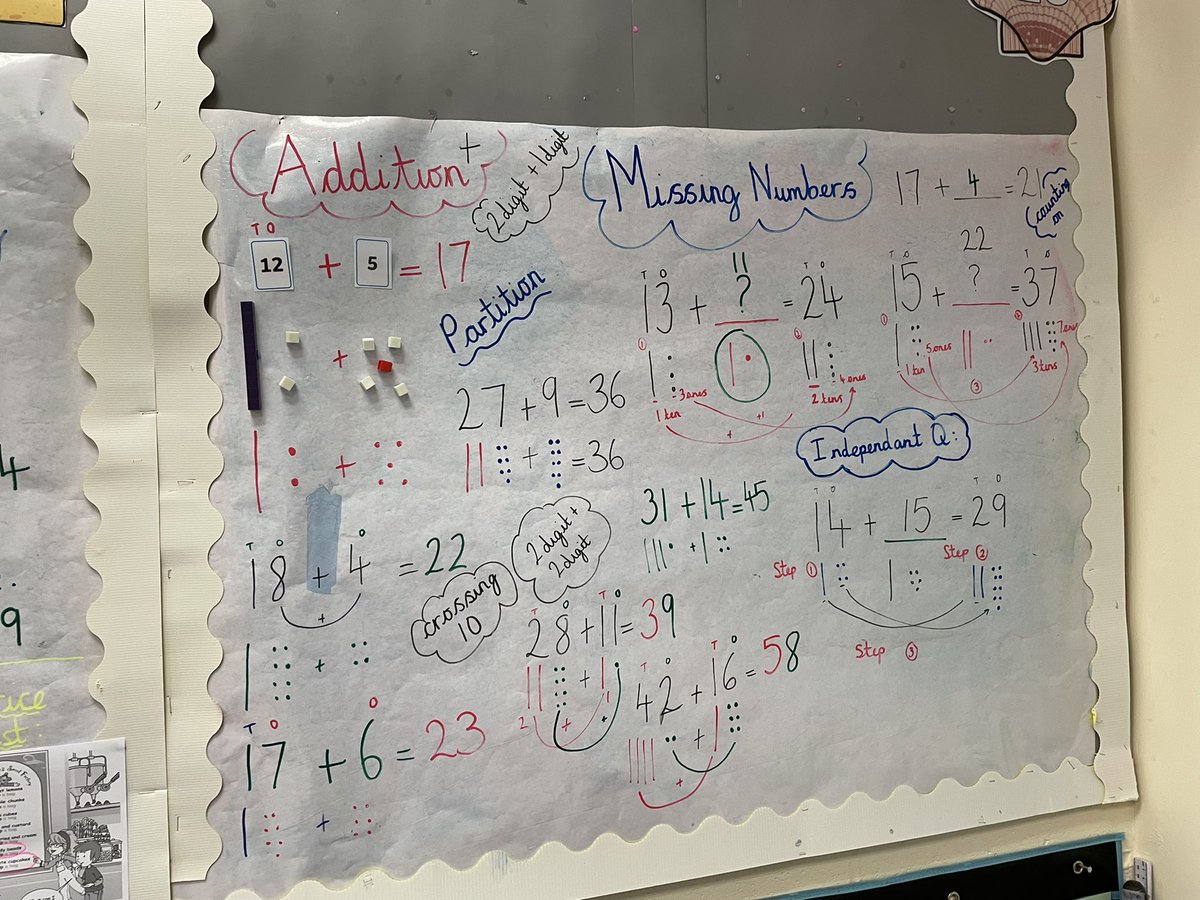 Addition +
2digit + 1digit
T O
12 + 5 = 17
Partition
27 + 9 = 36
= 36
T O O
18 + 4 = 22
+
+
crossing
10
T O O
17 + 6 = 23
+
2 digit +
2 digit
31 + 14 = 45
+
T O T O
28 + 11 = 39
+
2 + 1 +
T O T O
42 + 16 = 58
+
+
Missing Numbers
17 + 4 = 21
counting
on
11
T O T O
13 + ? = 24
① ②
3 ones 4 ones
1 ten 2 tens
+1
+
22
T O T O
15 + ? = 37
① ②
7 ones
5 ones
1 ten 3 tens
③
Independant Q:
T O T O
14 + 15 = 29
Step ① Step ②
Step ③
4
9